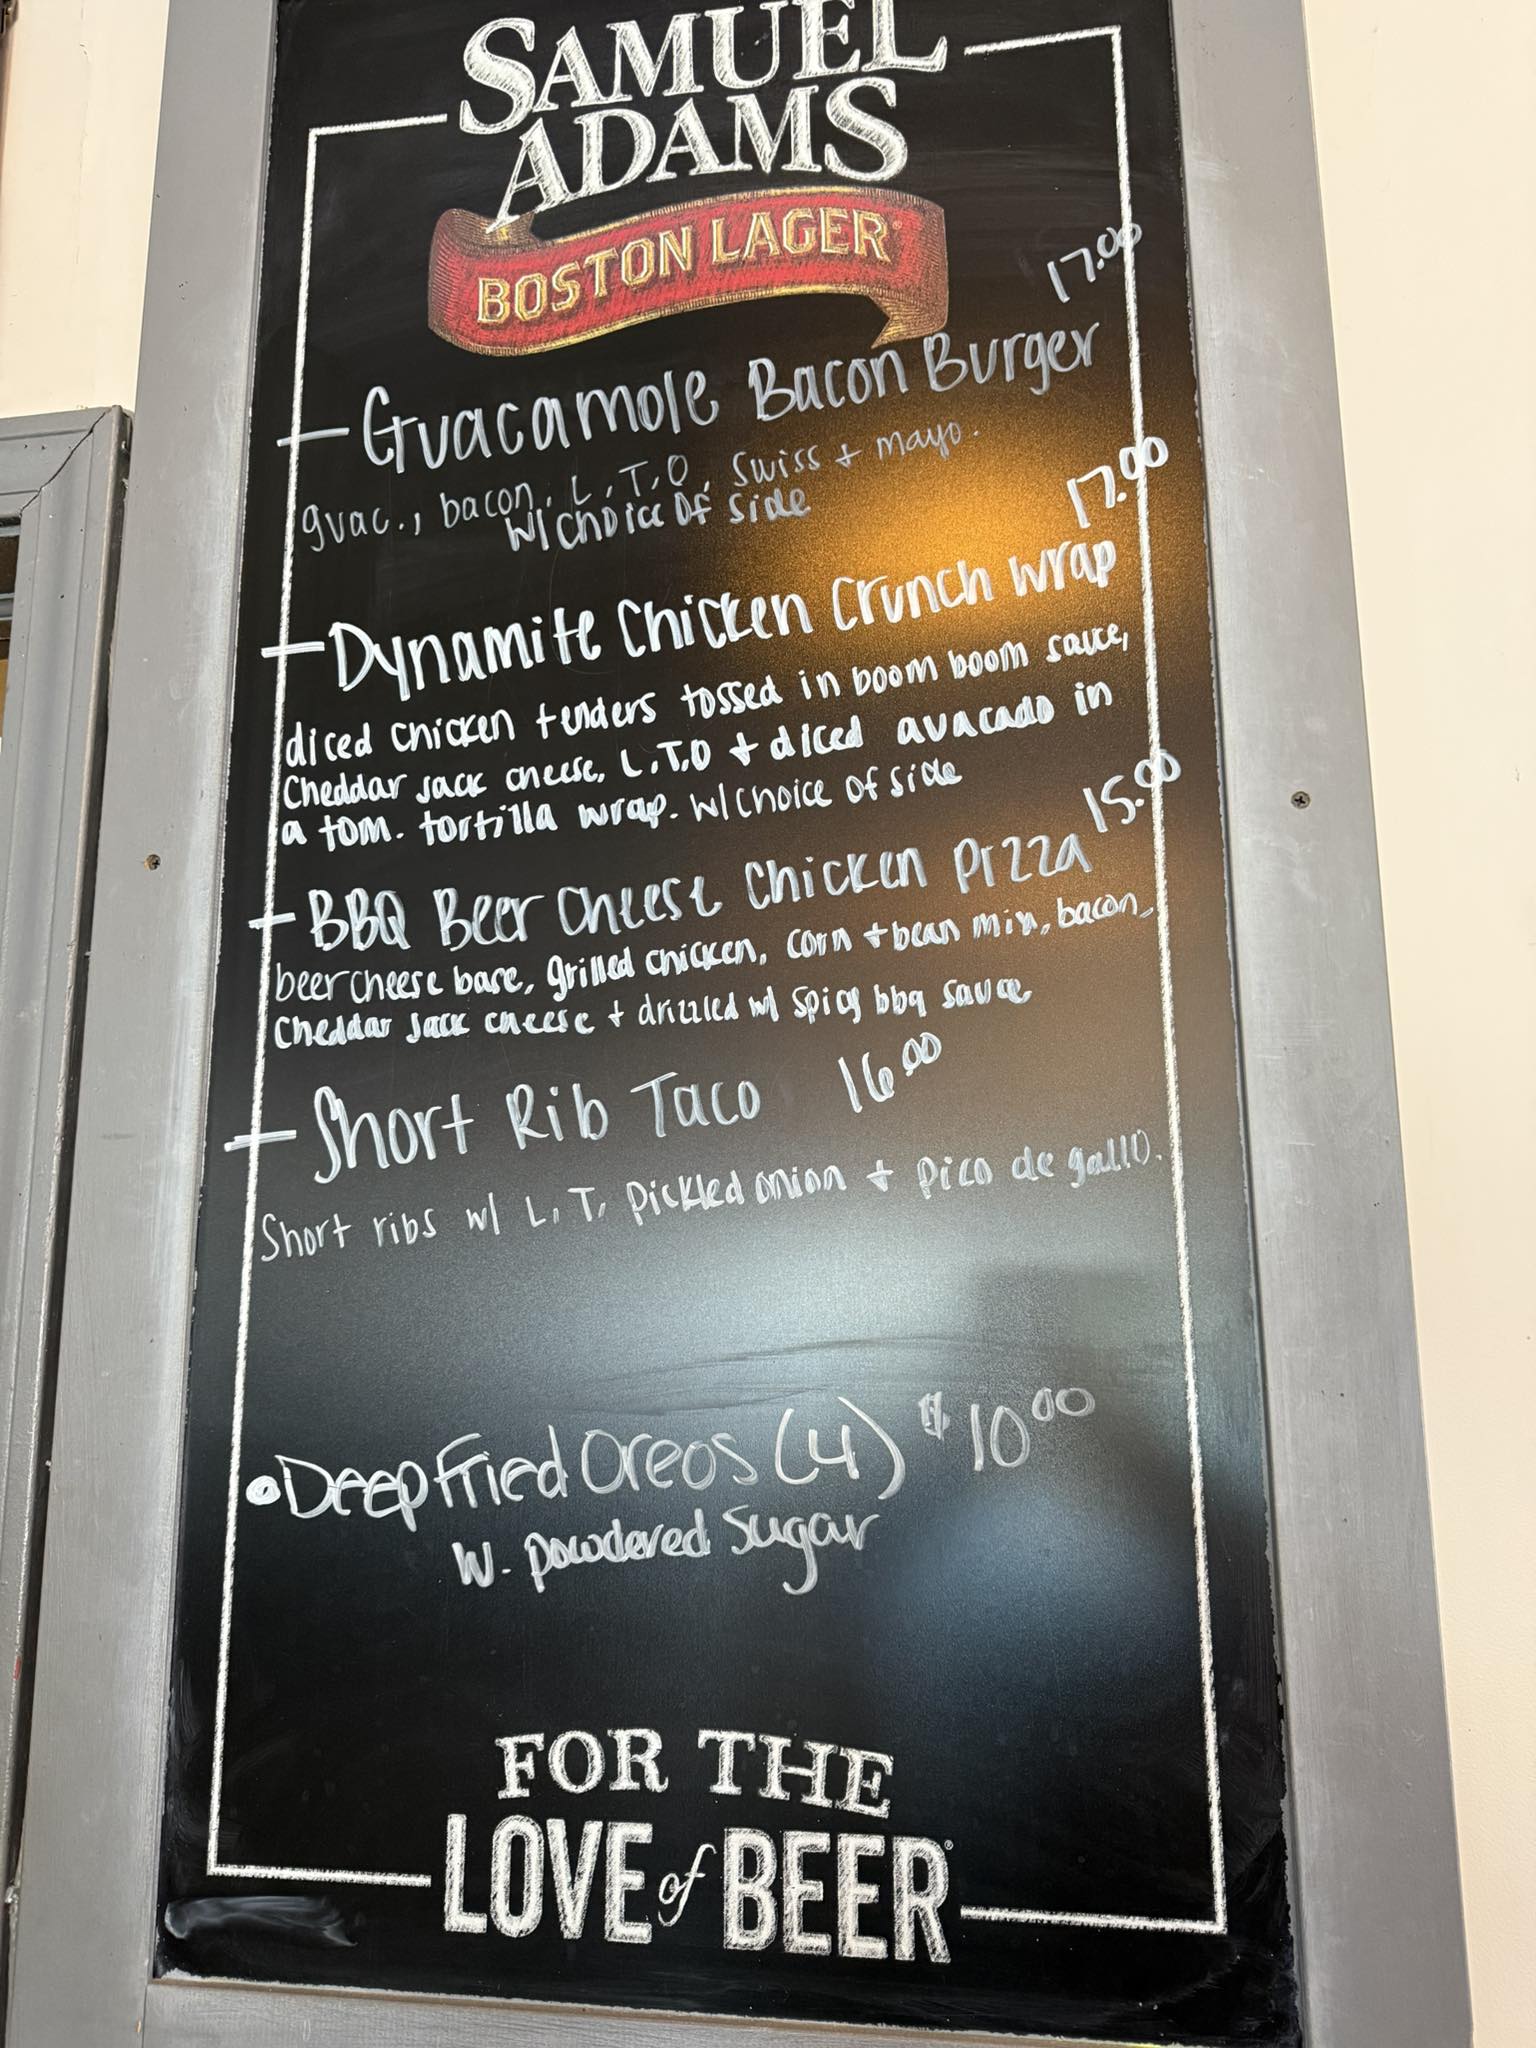 SAMUEL
ADAMS
BOSTON LAGER
17.00
- Guacamole Bacon Burger
guac., bacon, L, T, O, swiss + mayo.
w/ choice of side
17.00
- Dynamite Chicken Crunch wrap
diced chicken tenders tossed in boom boom sauce,
Cheddar jack cheese, L, T, O + diced avacado in
a tom. tortilla wrap. w/ choice of side
15.00
- BBQ Beer Cheese Chicken Pizza
beer cheese base, grilled chicken, corn + bean mix, bacon,
Cheddar Jack cheese + drizzled w/ spicy bbq sauce
- Short Rib Taco 16.00
Short ribs w/ L, T, pickled onion + pico de gallo.
• Deep Fried Oreos (4) $10.00
w. powdered sugar
FOR THE
LOVE of BEER